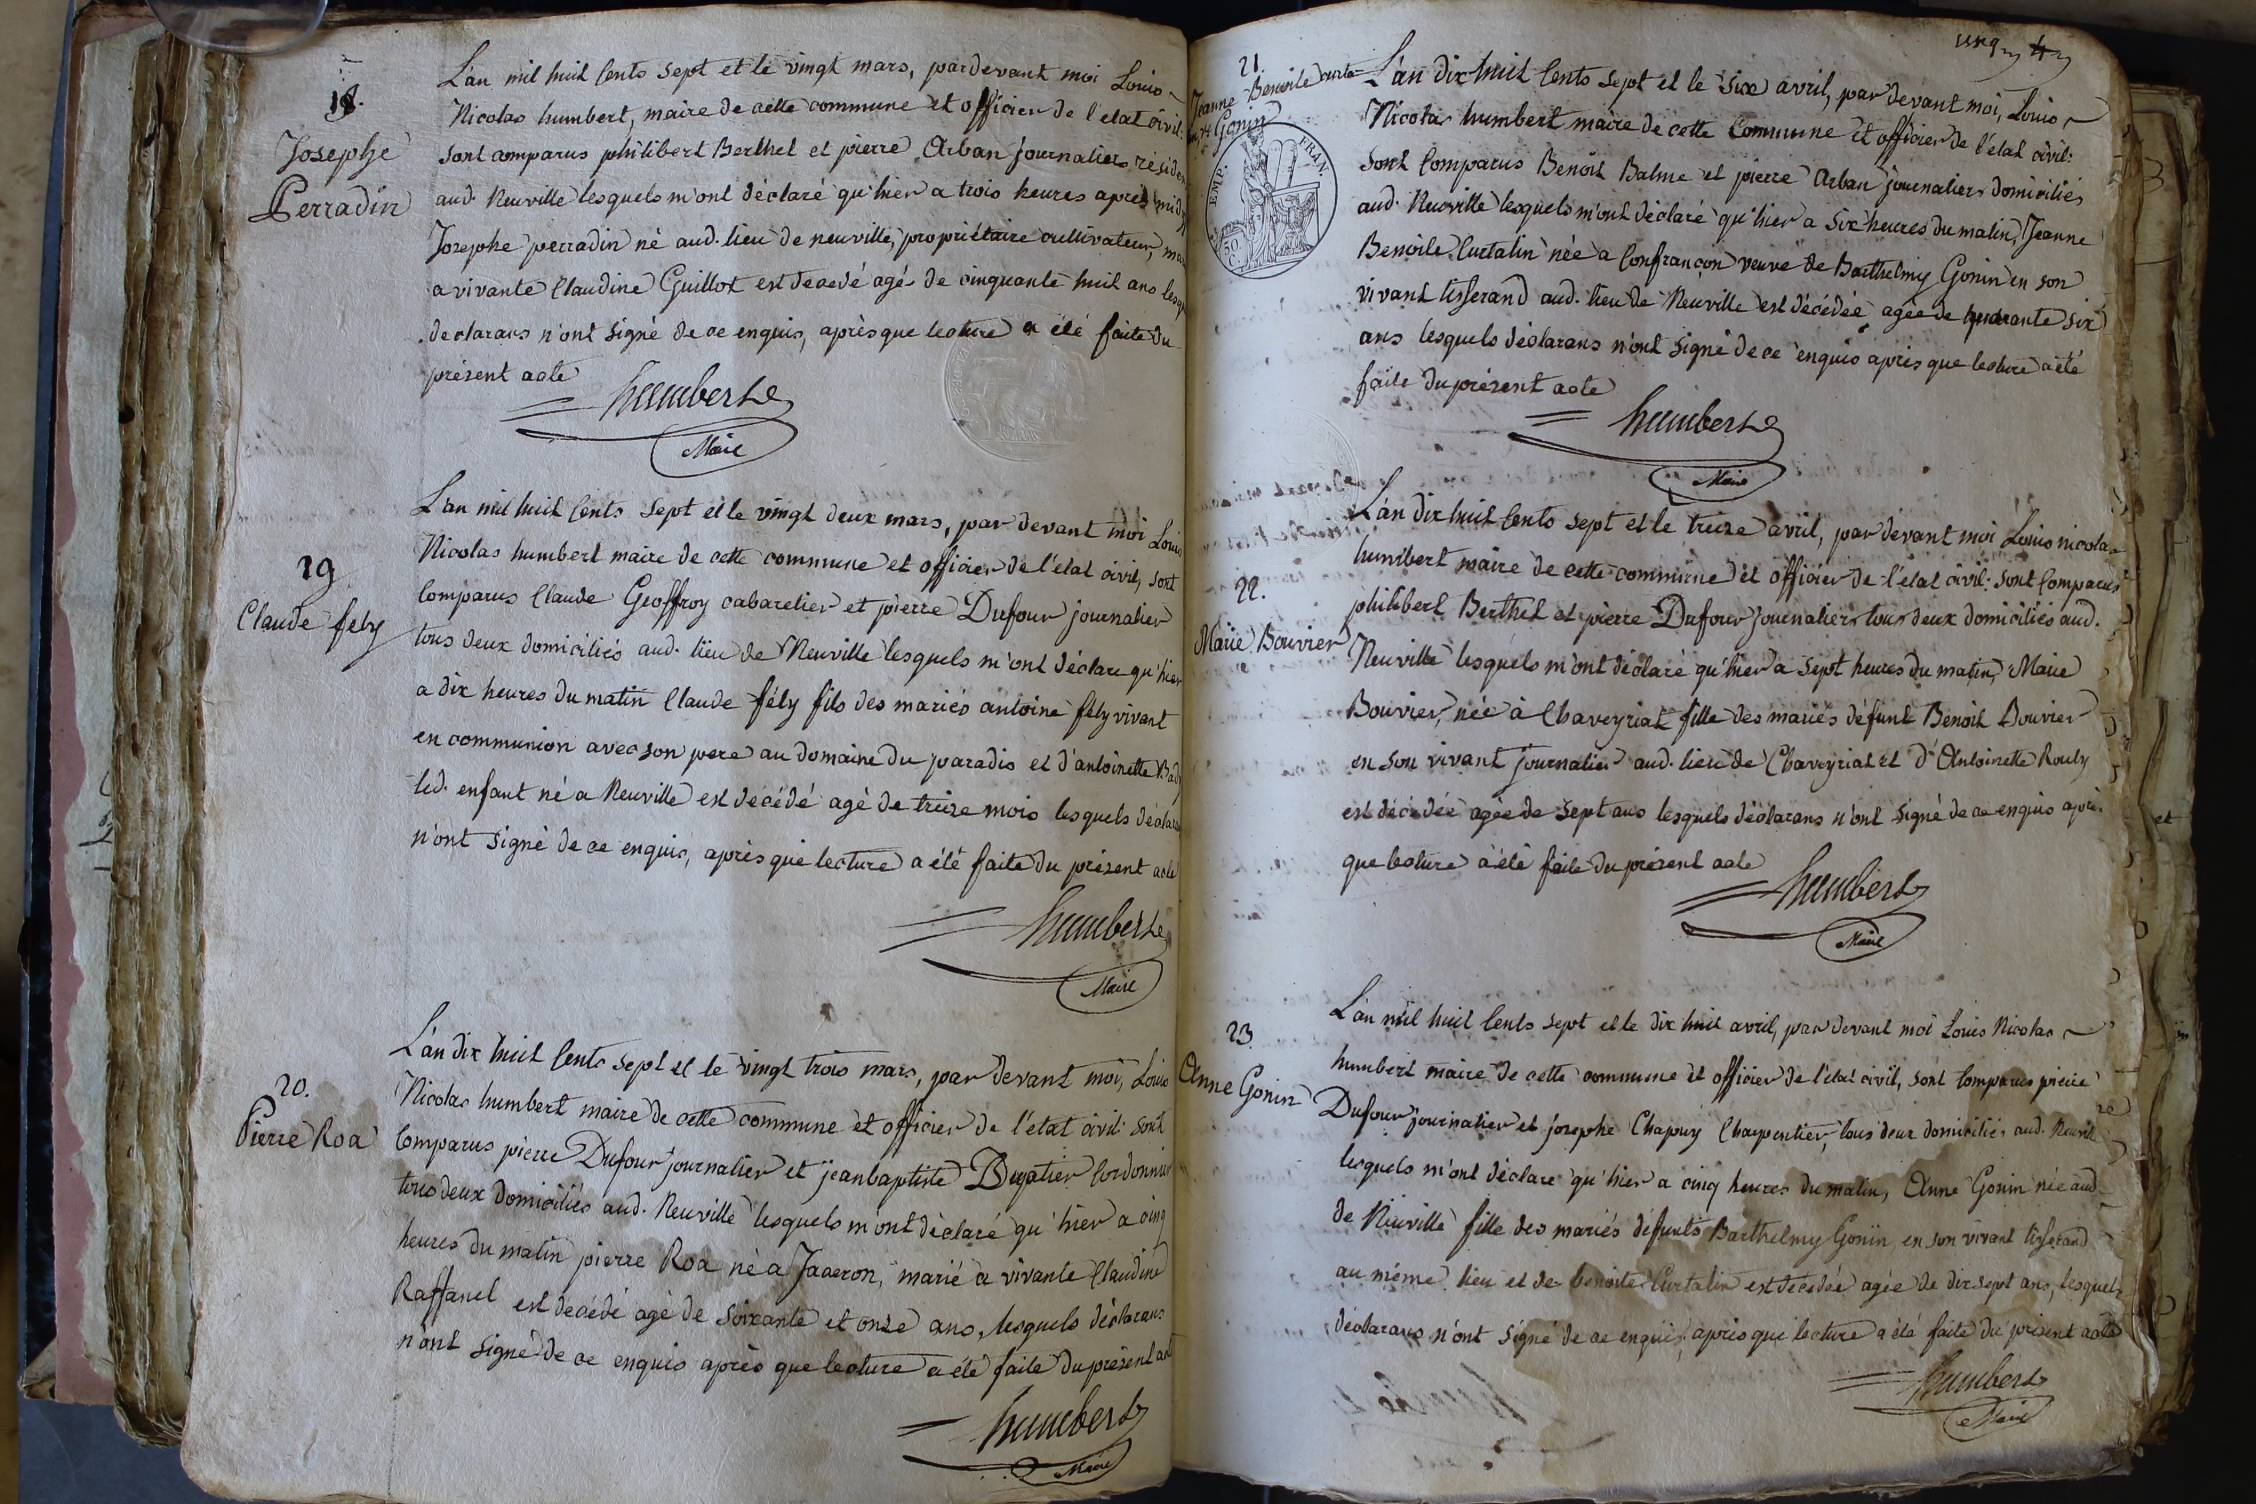 18.
Josephe
Perradin
L'an mil huit Cents sept et le vingt mars, pardevant moi Louis
Nicolas humbert, maire de cette commune et officier de l'etat civil:
sont comparus philibert Berthet et pierre Arban journaliers résidens
aud. Neuville lesquels m'ont déclaré qu'hier a trois heures après midy
Josephe perradin né aud. lieu de neuville, propriétaire cultivateur,
a vivante Claudine Guillot est decedé agé de cinquante huit ans
declarans n'ont signé de ce enquis, après que lecture a été faite du
présent acte
humbert
Maire
19
Claude fely
L'an mil huit Cents sept et le vingt deux mars, par devant moi Louis
Nicolas humbert maire de cette commune et officier de l'état civil, sont
Comparus Claude Geoffroy cabaretier et pierre Dufour journalier
tous deux domiciliés aud. lieu de Neuville lesquels m'ont déclaré qu'hier
a dix heures du matin Claude fély fils des mariés antoine fély vivant
en communion avec son pere au domaine du paradis et d'antoinette
led. enfant né a Neuville est décédé agé de treize mois lesquels déclarans
n'ont signé de ce enquis, après que lecture a été faite du présent acte
humbert
Maire
20.
Pierre Roa
L'an dix huit Cents sept et le vingt trois mars, par devant moi, Louis
Nicolas humbert maire de cette commune et officier de l'état civil: sont
Comparus pierre Dufour journalier et jeanbaptiste Dugatier Cordonnier
tous deux domiciliés aud. Neuville lesquels m'ont déclaré qu'hier a cinq
heures du matin pierre Roa né a Jaceron, marié a vivante Claudine
Raffanel est décédé agé de soixante et onze ans, lesquels déclarans
n'ont signé de ce enquis après que lecture a été faite du présent act
humbert
Maire
21.
Jeanne Benoite curta
Gonin
EMP. FRAN.
50 C.
L'an dix huit Cents sept et le six avril, par devant moi, Louis
Nicolas humbert maire de cette Commune et officier de l'état civil:
sont Comparus Benoit Balme et pierre Arban journaliers domiciliés
aud. Neuville lesquels m'ont déclaré qu'hier a six heures du matin, Jeanne
Benoite Curtalin née a Confrançon veuve de Barthelmy Gonin en son
vivant tisserand aud. lieu de Neuville est décédée agée de quarante six
ans lesquels déclarans n'ont signé de ce enquis après que lecture a été
faite du présent acte
humbert
Maire
22.
Marie Bouvier
L'an dix huit Cents sept et le treize avril, par devant moi Louis nicolas
humbert maire de cette commune et officier de l'état civil: sont Comparus
philibert Berthet et pierre Dufour journaliers tous deux domiciliés aud.
Neuville lesquels m'ont déclaré qu'hier a sept heures du matin, Marie
Bouvier, née à Chaveyriat fille des mariés défunt Benoit Bouvier
en son vivant journalier aud. lieu de Chaveyriat et d'Antoinette Rouly
est décédée agée de sept ans lesquels déclarans n'ont signé de ce enquis après
que lecture a été faite du présent acte
humbert
Maire
23.
Anne Gonin
L'an mil huit Cents sept et le dix huit avril, par devant moi Louis Nicolas
humbert maire de cette commune et officier de l'état civil, sont Comparus pierre
Dufour journalier et josephe Chapuy Charpentier, tous deux domiciliés aud. Neuville
lesquels m'ont déclaré qu'hier a cinq heures du matin, Anne Gonin née aud.
de Neuville fille des mariés défunts Barthelmy Gonin en son vivant tisserand
au même lieu et de benoite Curtalin est décédée agée de dix sept ans, lesquels
déclarans n'ont signé de ce enquis, après que lecture a été faite du présent acte
humbert
Maire